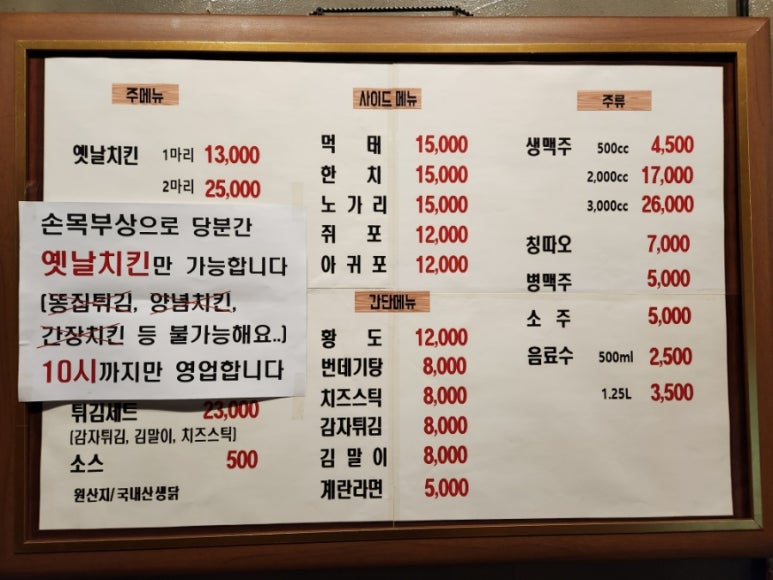 주메뉴
옛날치킨 1마리 13,000
2마리 25,000
손목부상으로 당분간
옛날치킨만 가능합니다
(똥집튀김, 양념치킨,
간장치킨 등 불가능해요..)
10시까지만 영업합니다
튀김세트 23,000
(감자튀김, 김말이, 치즈스틱)
소스 500
원산지/국내산생닭
사이드 메뉴
먹 태 15,000
한 치 15,000
노 가 리 15,000
쥐 포 12,000
아 귀 포 12,000
간단메뉴
황 도 12,000
번데기탕 8,000
치즈스틱 8,000
감자튀김 8,000
김 말 이 8,000
계란라면 5,000
주류
생맥주 500cc 4,500
2,000cc 17,000
3,000cc 26,000
칭따오 7,000
병맥주 5,000
소 주 5,000
음료수 500ml 2,500
1.25L 3,500